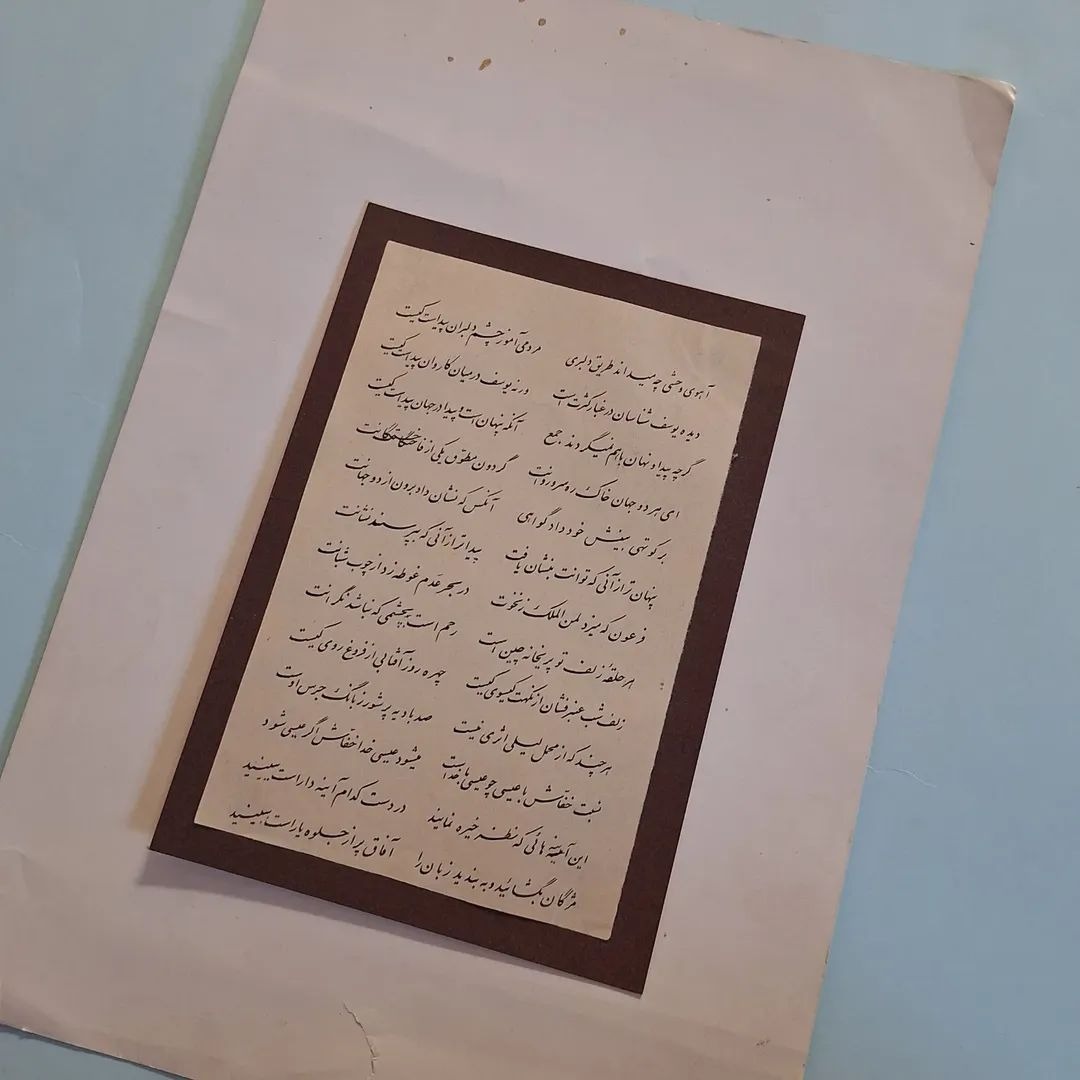 آهوی وحشی چه میداند طریق دلبری مردمی آموز چشم دلبران پیداست کیست
دیده یوسف شناسان در غبار کثرت است ورنه یوسف در میان کاروان پیداست کیست
گرچه پیدا و نهان باهم نمیگردند جمع آنکه پنهان است و پیدا در جهان پیداست کیست
ای هر دو جهان خاک ره سرو روانت گردون مطوق یکی از فاختگانت
بر کوتهی بینش خود داد گواهی آنکس که نشان داد برون از دو جهانت
پنهان تر از آنی که توانت بنشان یافت پیداتر از آنی که بپرسند نشانت
فرعون که میزد لمن الملک ز نخوت در بحر عدم غوطه زد از چوب شبانت
هر حلقهٔ زلف تو پریخانه چین است رحم است بچشمی که نباشد نگرانت
زلف شب عنبرفشان از نکهت گیسوی کیست چهره روز آفتابی از فروغ روی کیست
هرچند که از محمل لیلی اثری نیست صد بادیه پر شور ز بانگ جرس اوست
نسبت خفاش با عیسی چو عیسی با خداست میشود عیسی خدا خفاش اگر عیسی شود
این آینه هائی که نظر خیره نمایند در دست کدام آینه دار است ببینید
مژگان بگشائید و به بندید زبان را آفاق پر از جلوه یار است ببینید